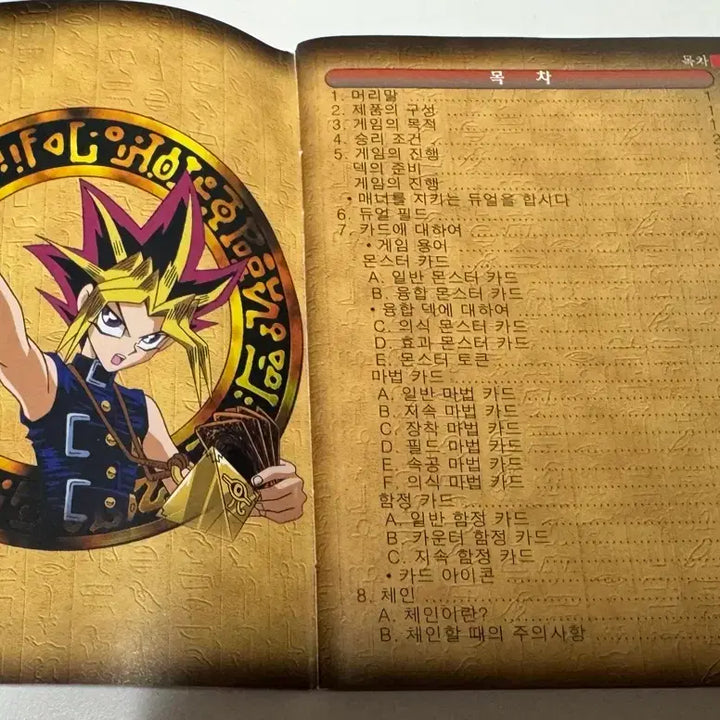 목차
목 차
1. 머리말
2. 제품의 구성
3. 게임의 목적
4. 승리 조건
5. 게임의 진행
덱의 준비
게임의 진행
• 매너를 지키는 듀얼을 합시다
6. 듀얼 필드
7. 카드에 대하여
• 게임 용어
몬스터 카드
A. 일반 몬스터 카드
B. 융합 몬스터 카드
• 융합 덱에 대하여
C. 의식 몬스터 카드
D. 효과 몬스터 카드
E. 몬스터 토큰
마법 카드
A. 일반 마법 카드
B. 지속 마법 카드
C. 장착 마법 카드
D. 필드 마법 카드
E. 속공 마법 카드
F. 의식 마법 카드
함정 카드
A. 일반 함정 카드
B. 카운터 함정 카드
C. 지속 함정 카드
• 카드 아이콘
8. 체인
A. 체인이란?
B. 체인할 때의 주의사항